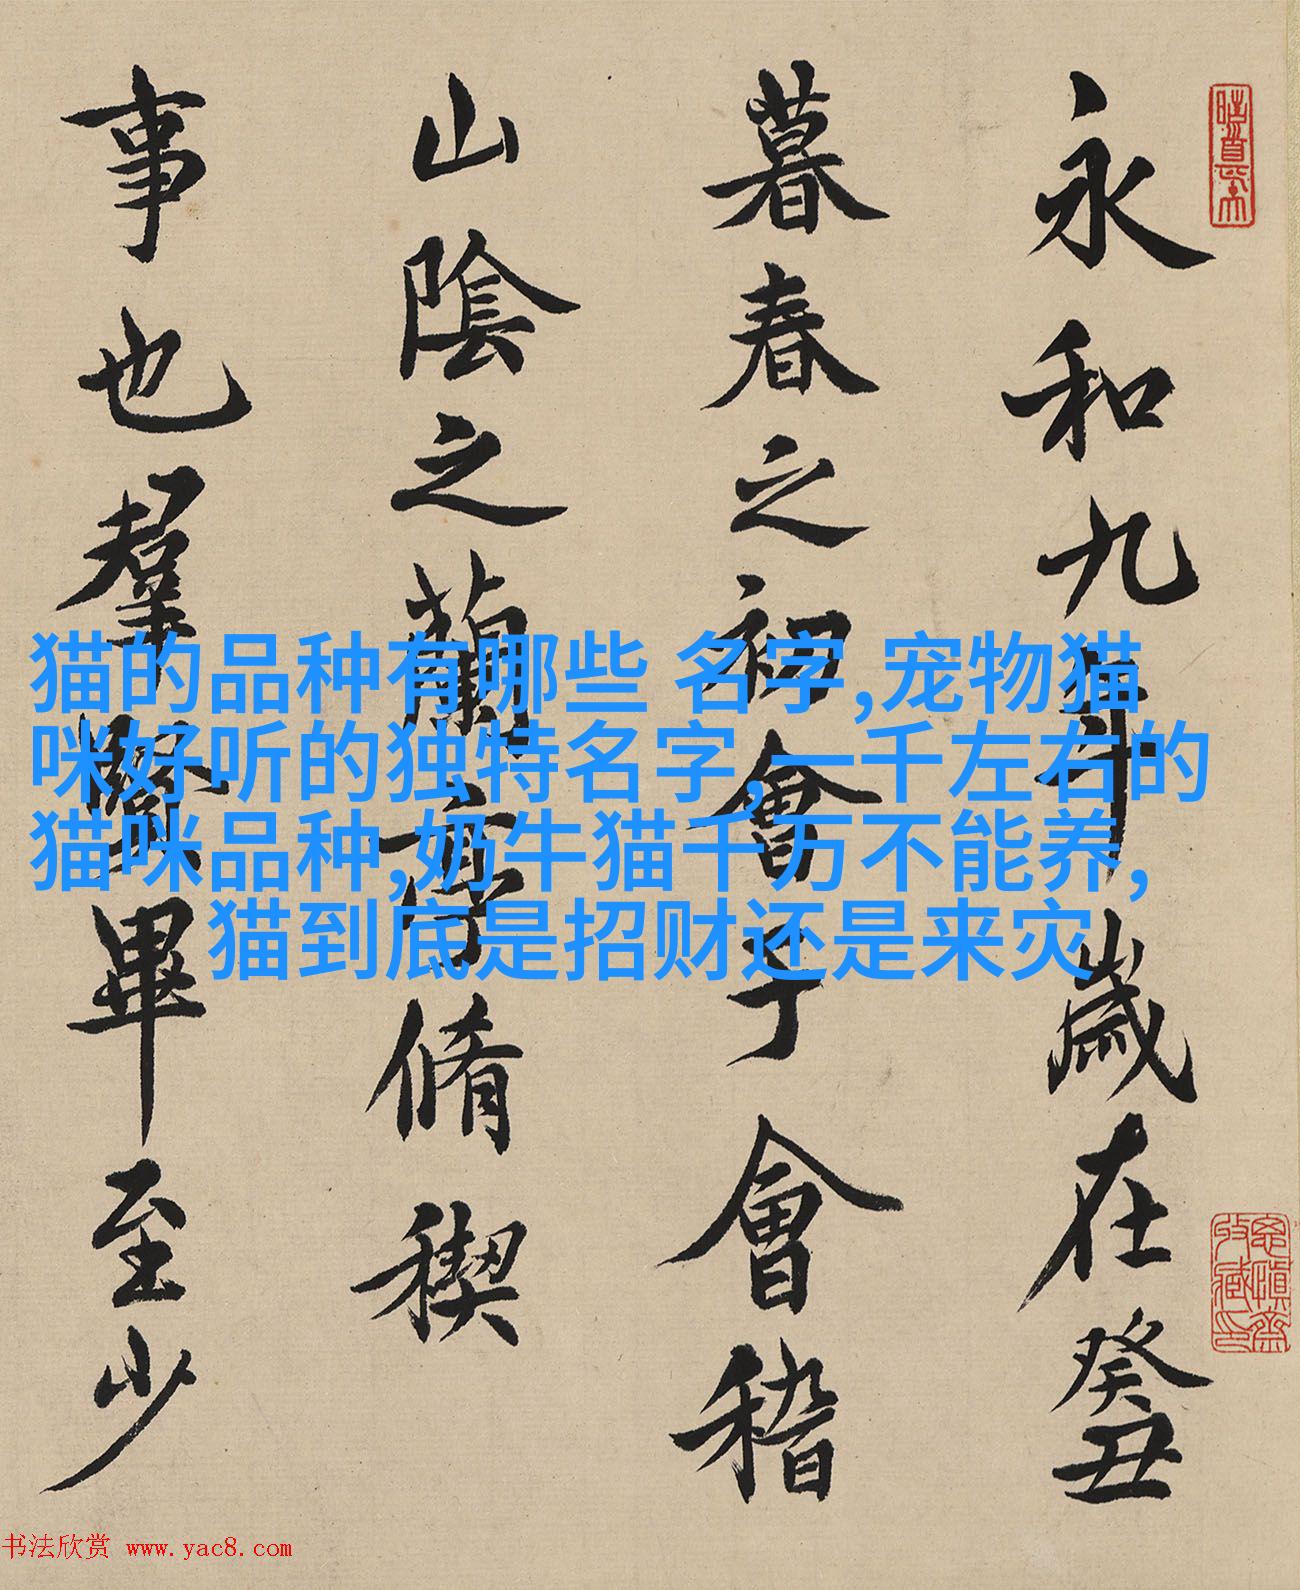 永和九年歲在癸丑
暮春之初會于會稽
山陰之蘭亭脩稧
事也羣賢畢至少
猫的品种有哪些 名字,宠物猫
咪好听的独特名字,一千左右的
猫咪品种,奶牛猫千万不能养,
猫到底是招财还是来灾
书法欣赏 www.yac8.com